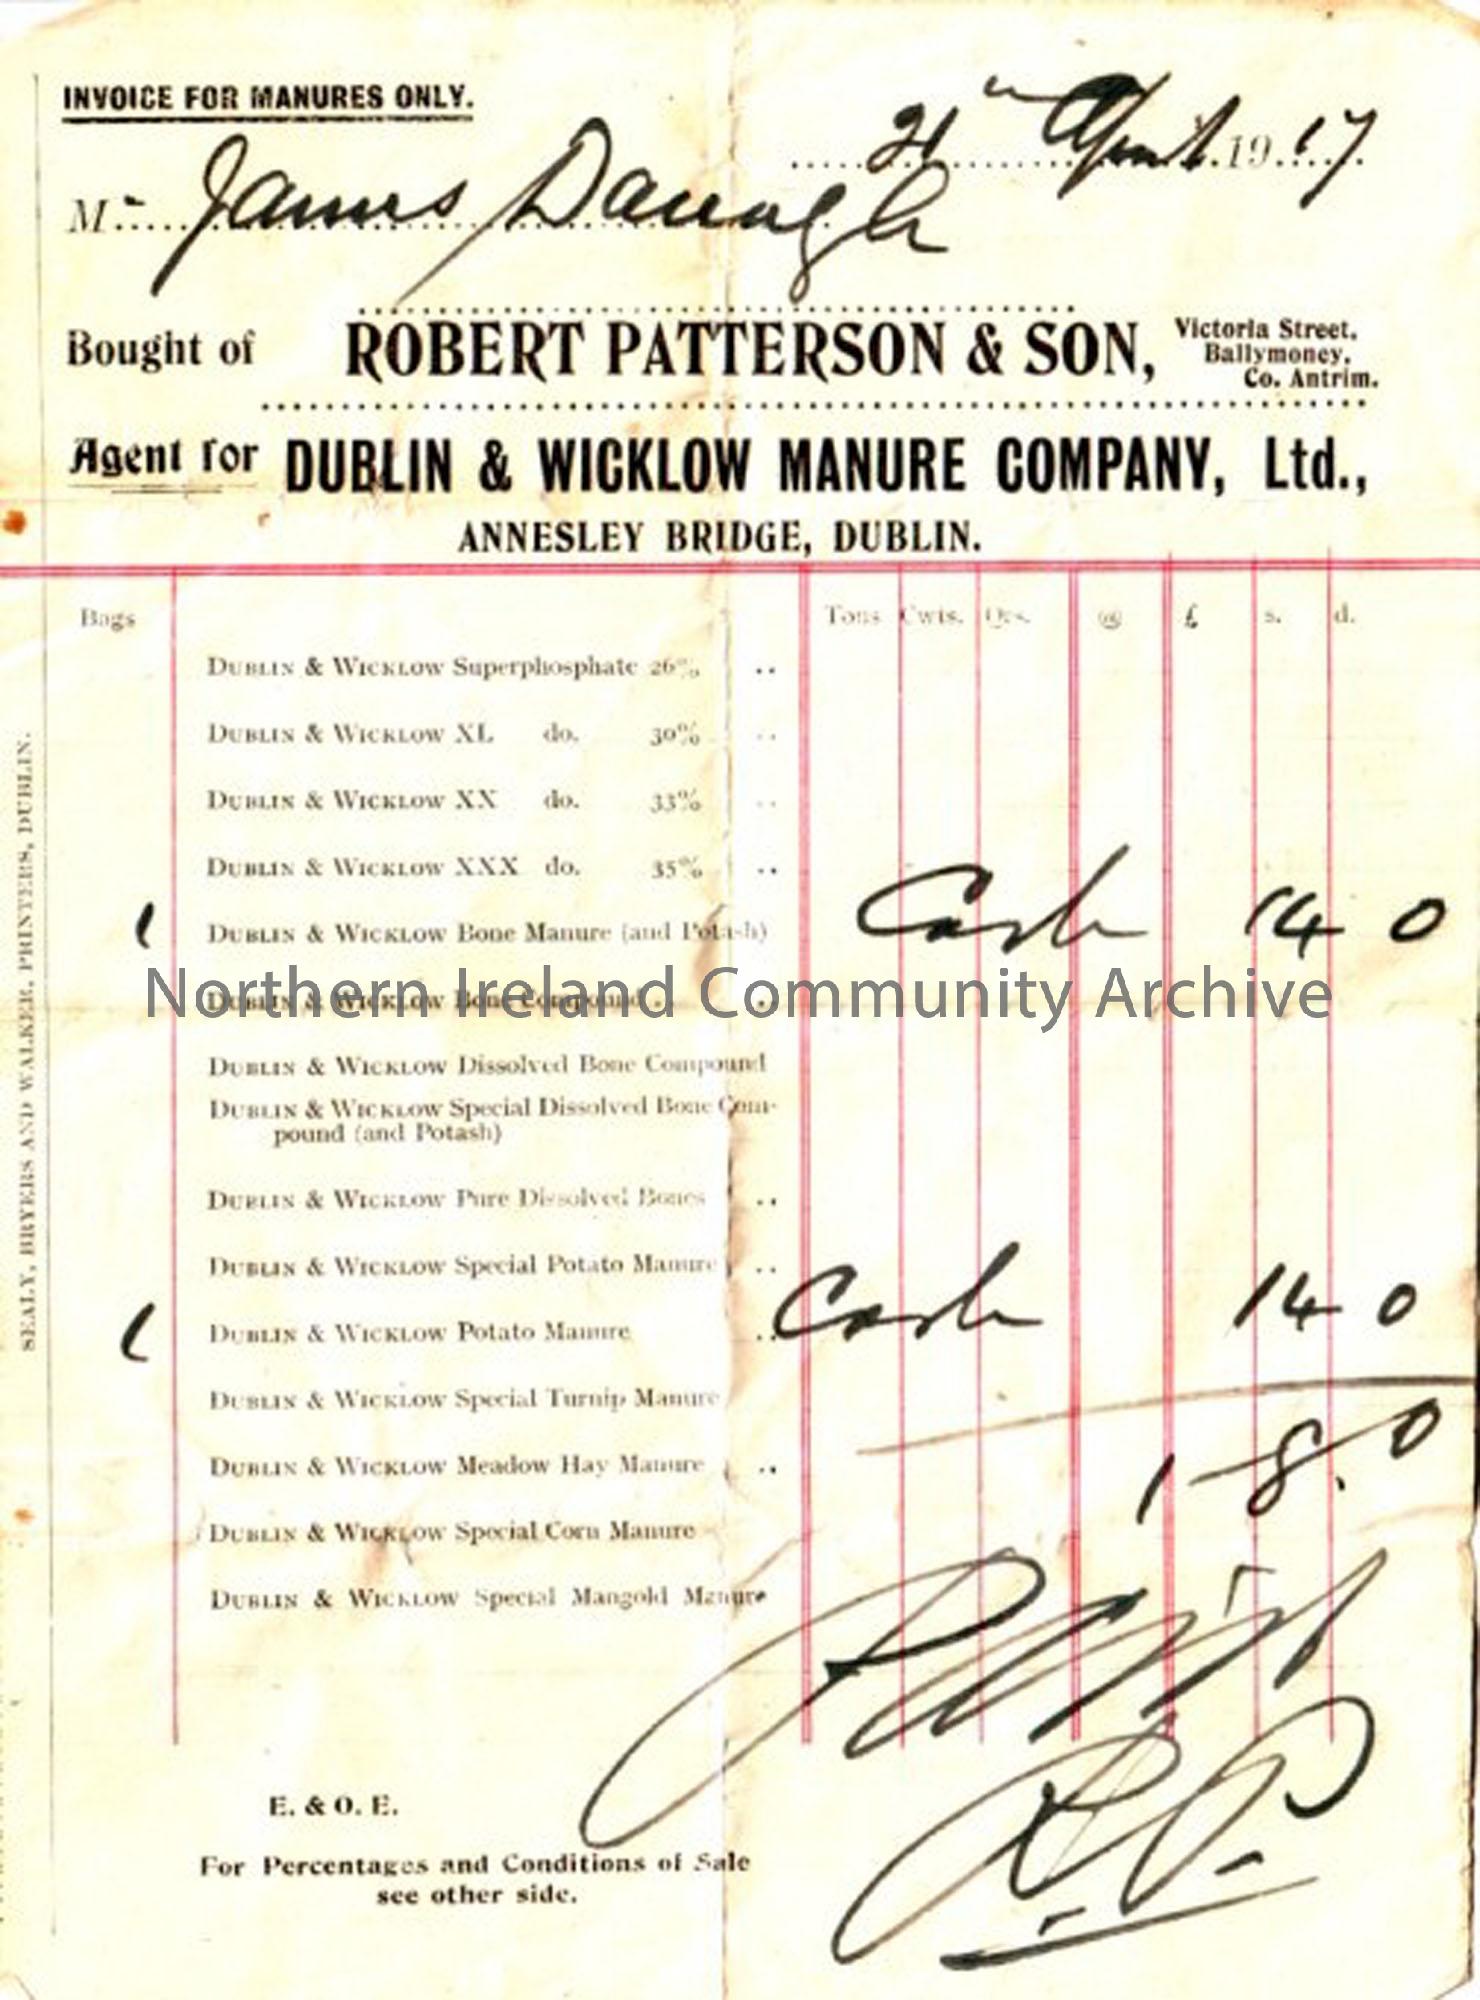 INVOICE FOR MANURES ONLY.
21st April 1917
Mr. James Danagh
Bought of ROBERT PATTERSON & SON, Victoria Street.
Ballymoney.
Co. Antrim.
Agent for DUBLIN & WICKLOW MANURE COMPANY, Ltd.,
ANNESLEY BRIDGE, DUBLIN.
Bags Tons Cwts. Qrs. @ £ s. d.
DUBLIN & WICKLOW Superphosphate 26% ..
DUBLIN & WICKLOW XL do. 30% ..
DUBLIN & WICKLOW XX do. 33% ..
DUBLIN & WICKLOW XXX do. 35% ..
1 DUBLIN & WICKLOW Bone Manure (and Potash) Cash 14 0
Northern Ireland Community Archive
DUBLIN & WICKLOW Bone Compound .. ..
DUBLIN & WICKLOW Dissolved Bone Compound
DUBLIN & WICKLOW Special Dissolved Bone Com-
pound (and Potash)
DUBLIN & WICKLOW Pure Dissolved Bones ..
DUBLIN & WICKLOW Special Potato Manure ..
1 DUBLIN & WICKLOW Potato Manure .. Cash 14 0
DUBLIN & WICKLOW Special Turnip Manure
1-8.0
DUBLIN & WICKLOW Meadow Hay Manure ..
DUBLIN & WICKLOW Special Corn Manure
DUBLIN & WICKLOW Special Mangold Manure
Paid
R P
E. & O. E.
For Percentages and Conditions of Sale
see other side.
SEALY, BRYERS AND WALKER, PRINTERS, DUBLIN.